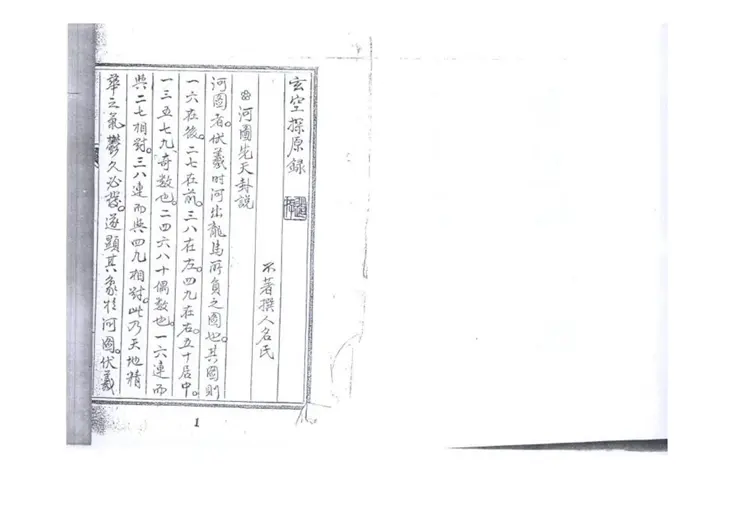 玄空探原錄
不著撰人名氏
河圖先天卦說
河圖者。伏羲時河出龍馬所負之圖也。其圖則
一六在後。二七在前。三八在左。四九在右。五十居中。
一三五七九、奇数也。二四六八十偶数也。一六連而
與二七相對。三八連而與四九相對。此乃天地精
華之氣。鬱久必發。遂顯其象於河圖。伏羲
1